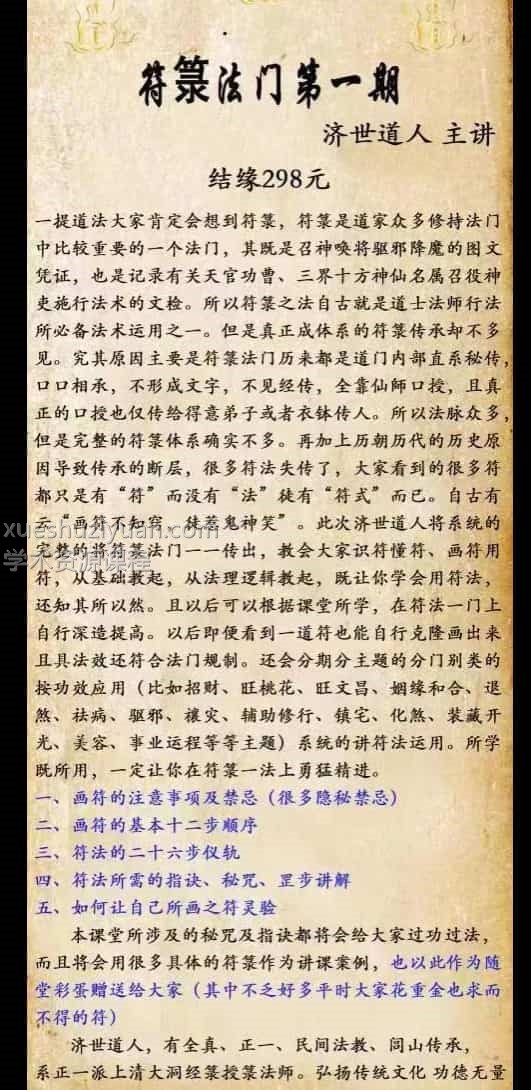 符箓法门第一期
济世道人 主讲
结缘298元
一提道法大家肯定会想到符箓，符箓是道家众多修持法门
中比较重要的一个法门，其既是召神唤将驱邪降魔的图文
凭证，也是记录有关天官功曹、三界十方神仙名属召役神
吏施行法术的文检。所以符箓之法自古就是道士法师行法
所必备法术运用之一。但是真正成体系的符箓传承却不多
见。究其原因主要是符箓法门历来都是道门内部直系秘传，
口口相承，不形成文字，不见经传，全靠仙师口授，且真
正的口授也仅传给得意弟子或者衣钵传人。所以法脉众多，
但是完整的符箓体系确实不多。再加上历朝历代的历史原
因导致传承的断层，很多符法失传了，大家看到的很多符
都只是有“符”而没有“法”徒有“符式”而已。自古有
云“画符不知窍，徒惹鬼神笑”。此次济世道人将系统的
xueshuziyuan.com
完整的将符箓法门一一传出，教会大家识符懂符、画符用
学术资源课程
符，从基础教起，从法理逻辑教起，既让你学会用符法，
还知其所以然。且以后可以根据课堂所学，在符箓一门上
自行深造提高。以后即便看到一道符也能自行克隆画出来
且具法效还符合法门规制。还会分期分主题的分门别类的
按功效应用（比如招财、旺桃花、旺文昌、姻缘和合、退
煞、祛病、驱邪、禳灾、辅助修行、镇宅、化煞、装藏开
光、美容、事业运程等等主题）系统的讲符法运用。所学
既所用，一定让你在符箓一法上勇猛精进。
一、画符的注意事项及禁忌（很多隐秘禁忌）
二、画符的基本十二步顺序
三、符法的二十六步仪轨
四、符法所需的指诀、秘咒、罡步讲解
五、如何让自己所画之符灵验
本课堂所涉及的秘咒及指诀都将会给大家过功过法，
而且将会用很多具体的符箓作为讲课案例，也以此作为随
堂彩蛋赠送给大家（其中不乏好多平时大家花重金也求而
不得的符）
济世道人，有全真、正一、民间法教、闾山传承，
系正一派上清大洞经箓授箓法师。弘扬传统文化 功德无量